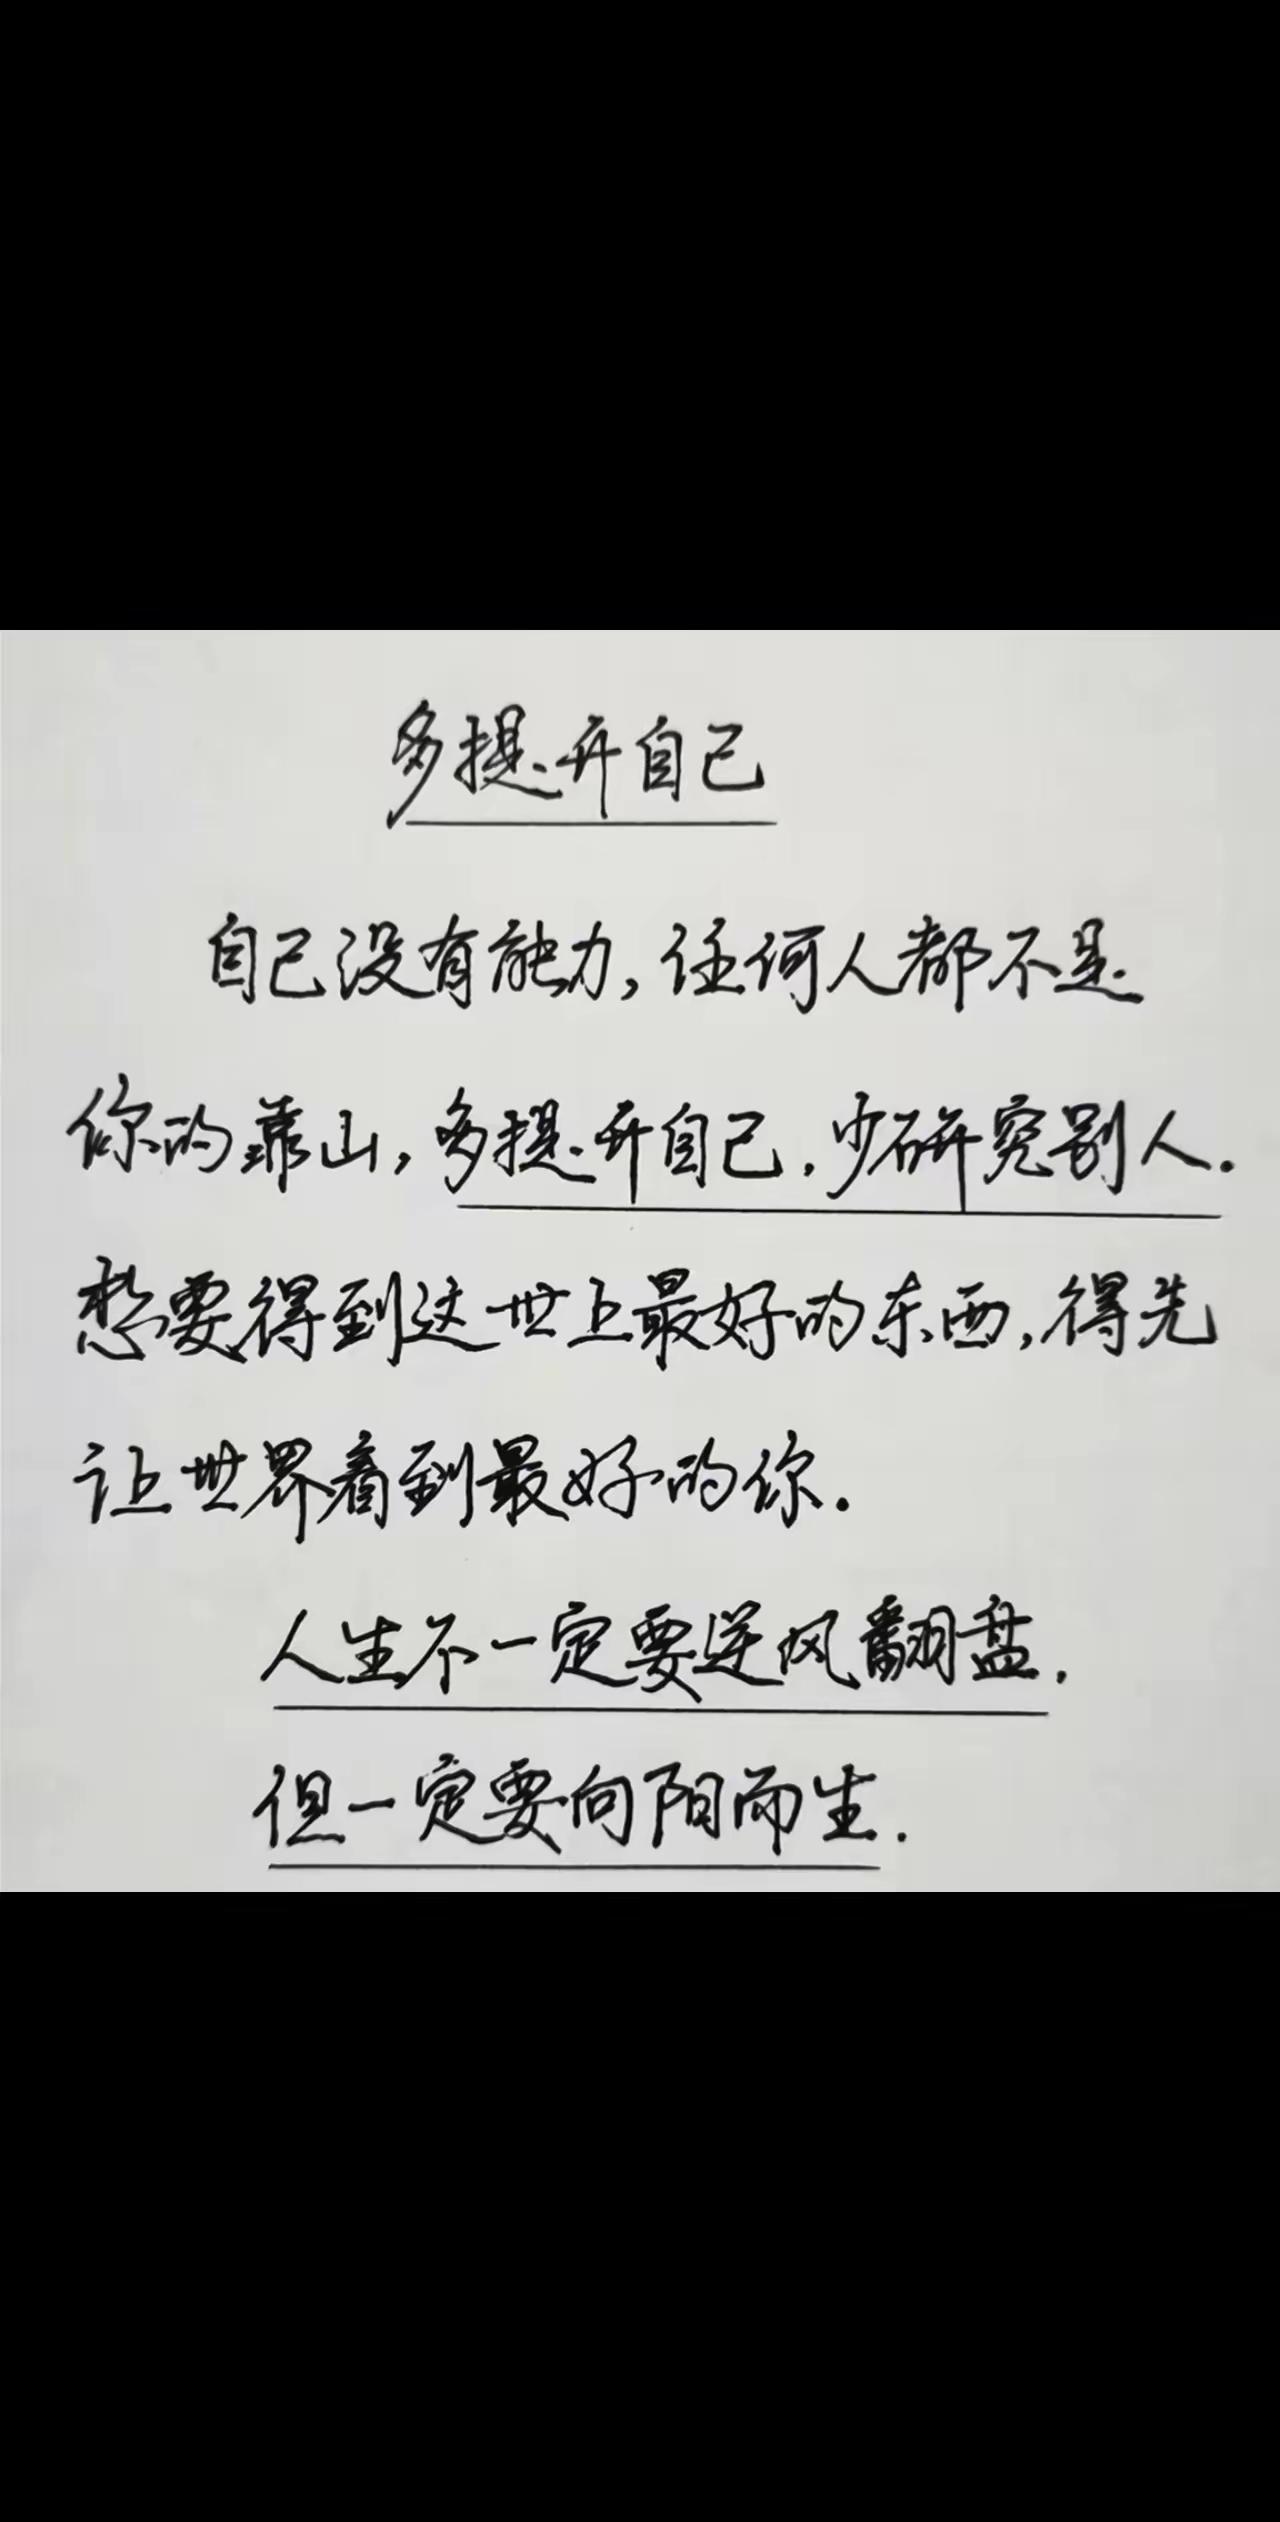 多提升自己
自己没有能力,任何人都不是
你的靠山,多提升自己,少研究别人.
想要得到这世上最好的东西,得先
让世界看到最好的你.
人生不一定要逆风翻盘.
但一定要向阳而生.